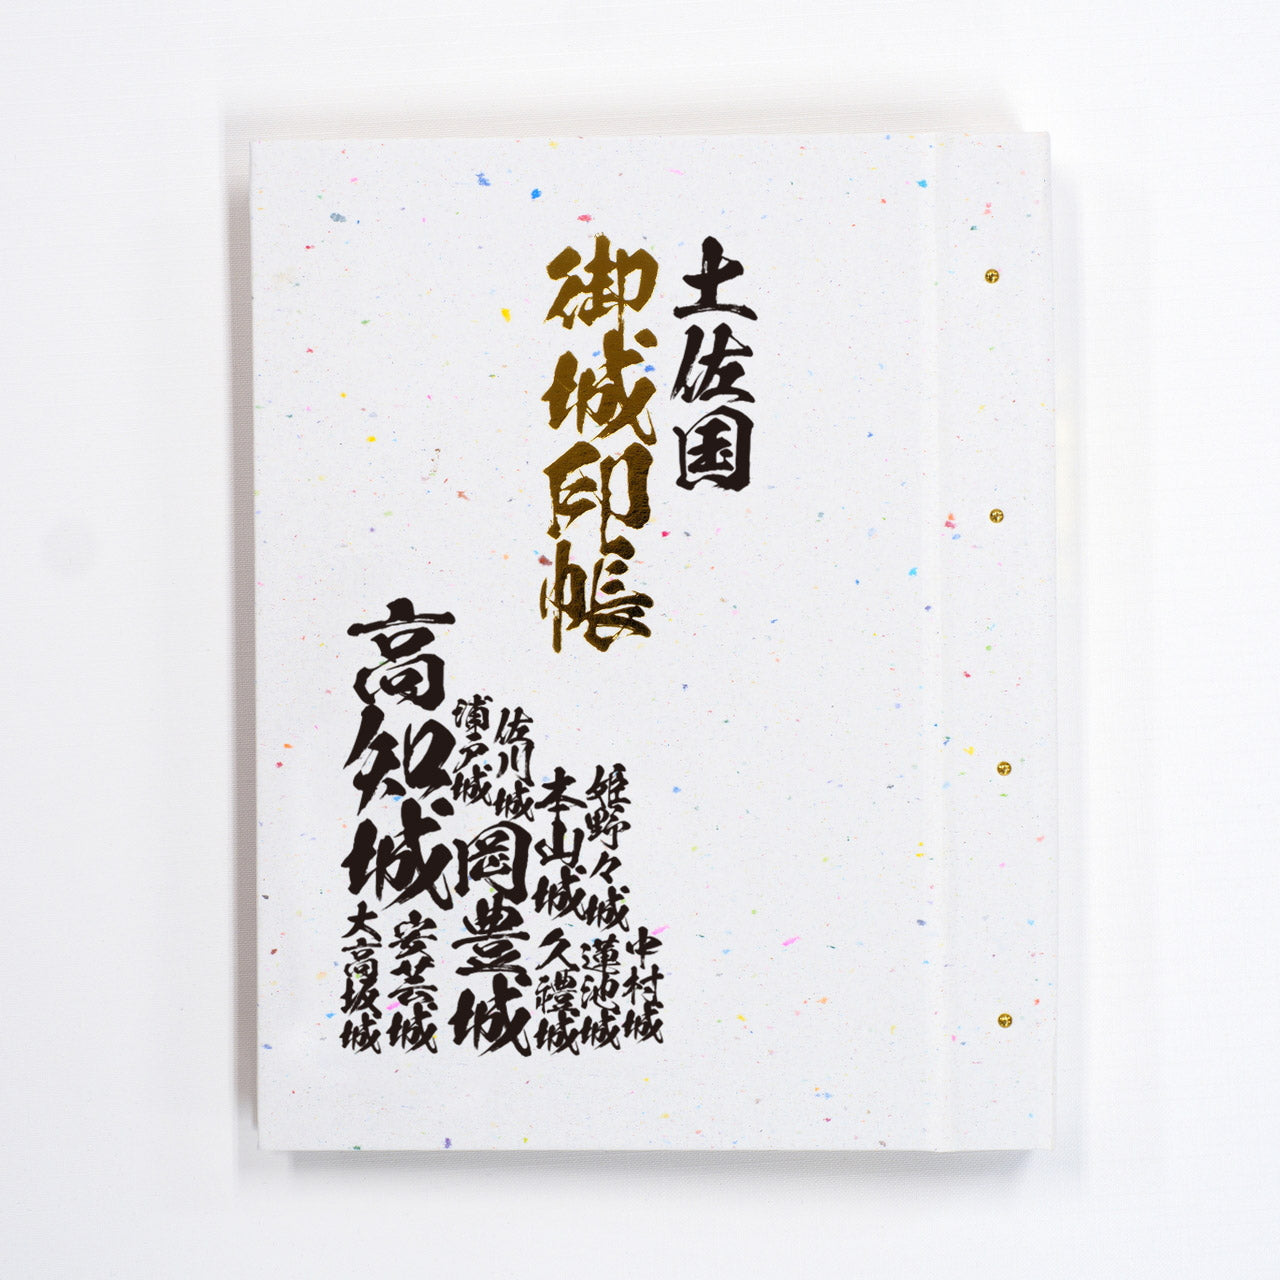 土佐国
御城印帳
中村城
姫野々城
蓮池城
本山城
久禮城
佐川城
浦戸城
岡豊城
安芸城
高知城
大高坂城